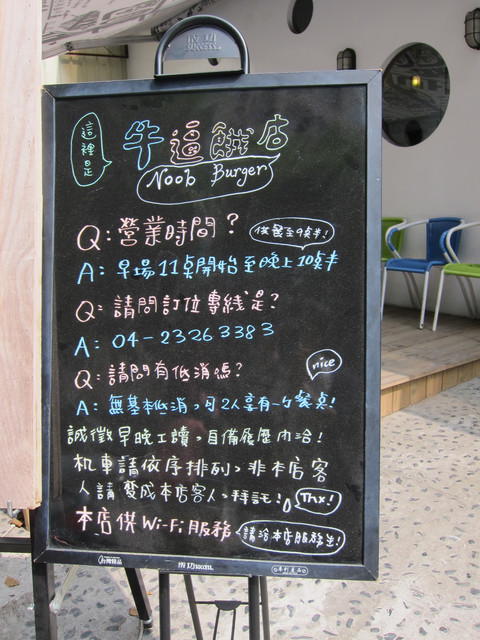 成功
SUCCESS
這裡是
牛逼餓店
Noob Burger
Q：營業時間？
供餐至9点半！
A：早場11点開始至晚上10点半
Q：請問訂位專線是？
A：04-23263383
Q：請問有低消嗎？
nice
A：無基本低消，可2人享有一份餐点！
誠徵早晚工讀，自備履歷內洽！
机車請依序排列，非本店客
人請變成本店客人，拜託！
Thx！
本店供Wi-Fi服務
請洽本店服務生！
台灣精品
成功SUCCESS